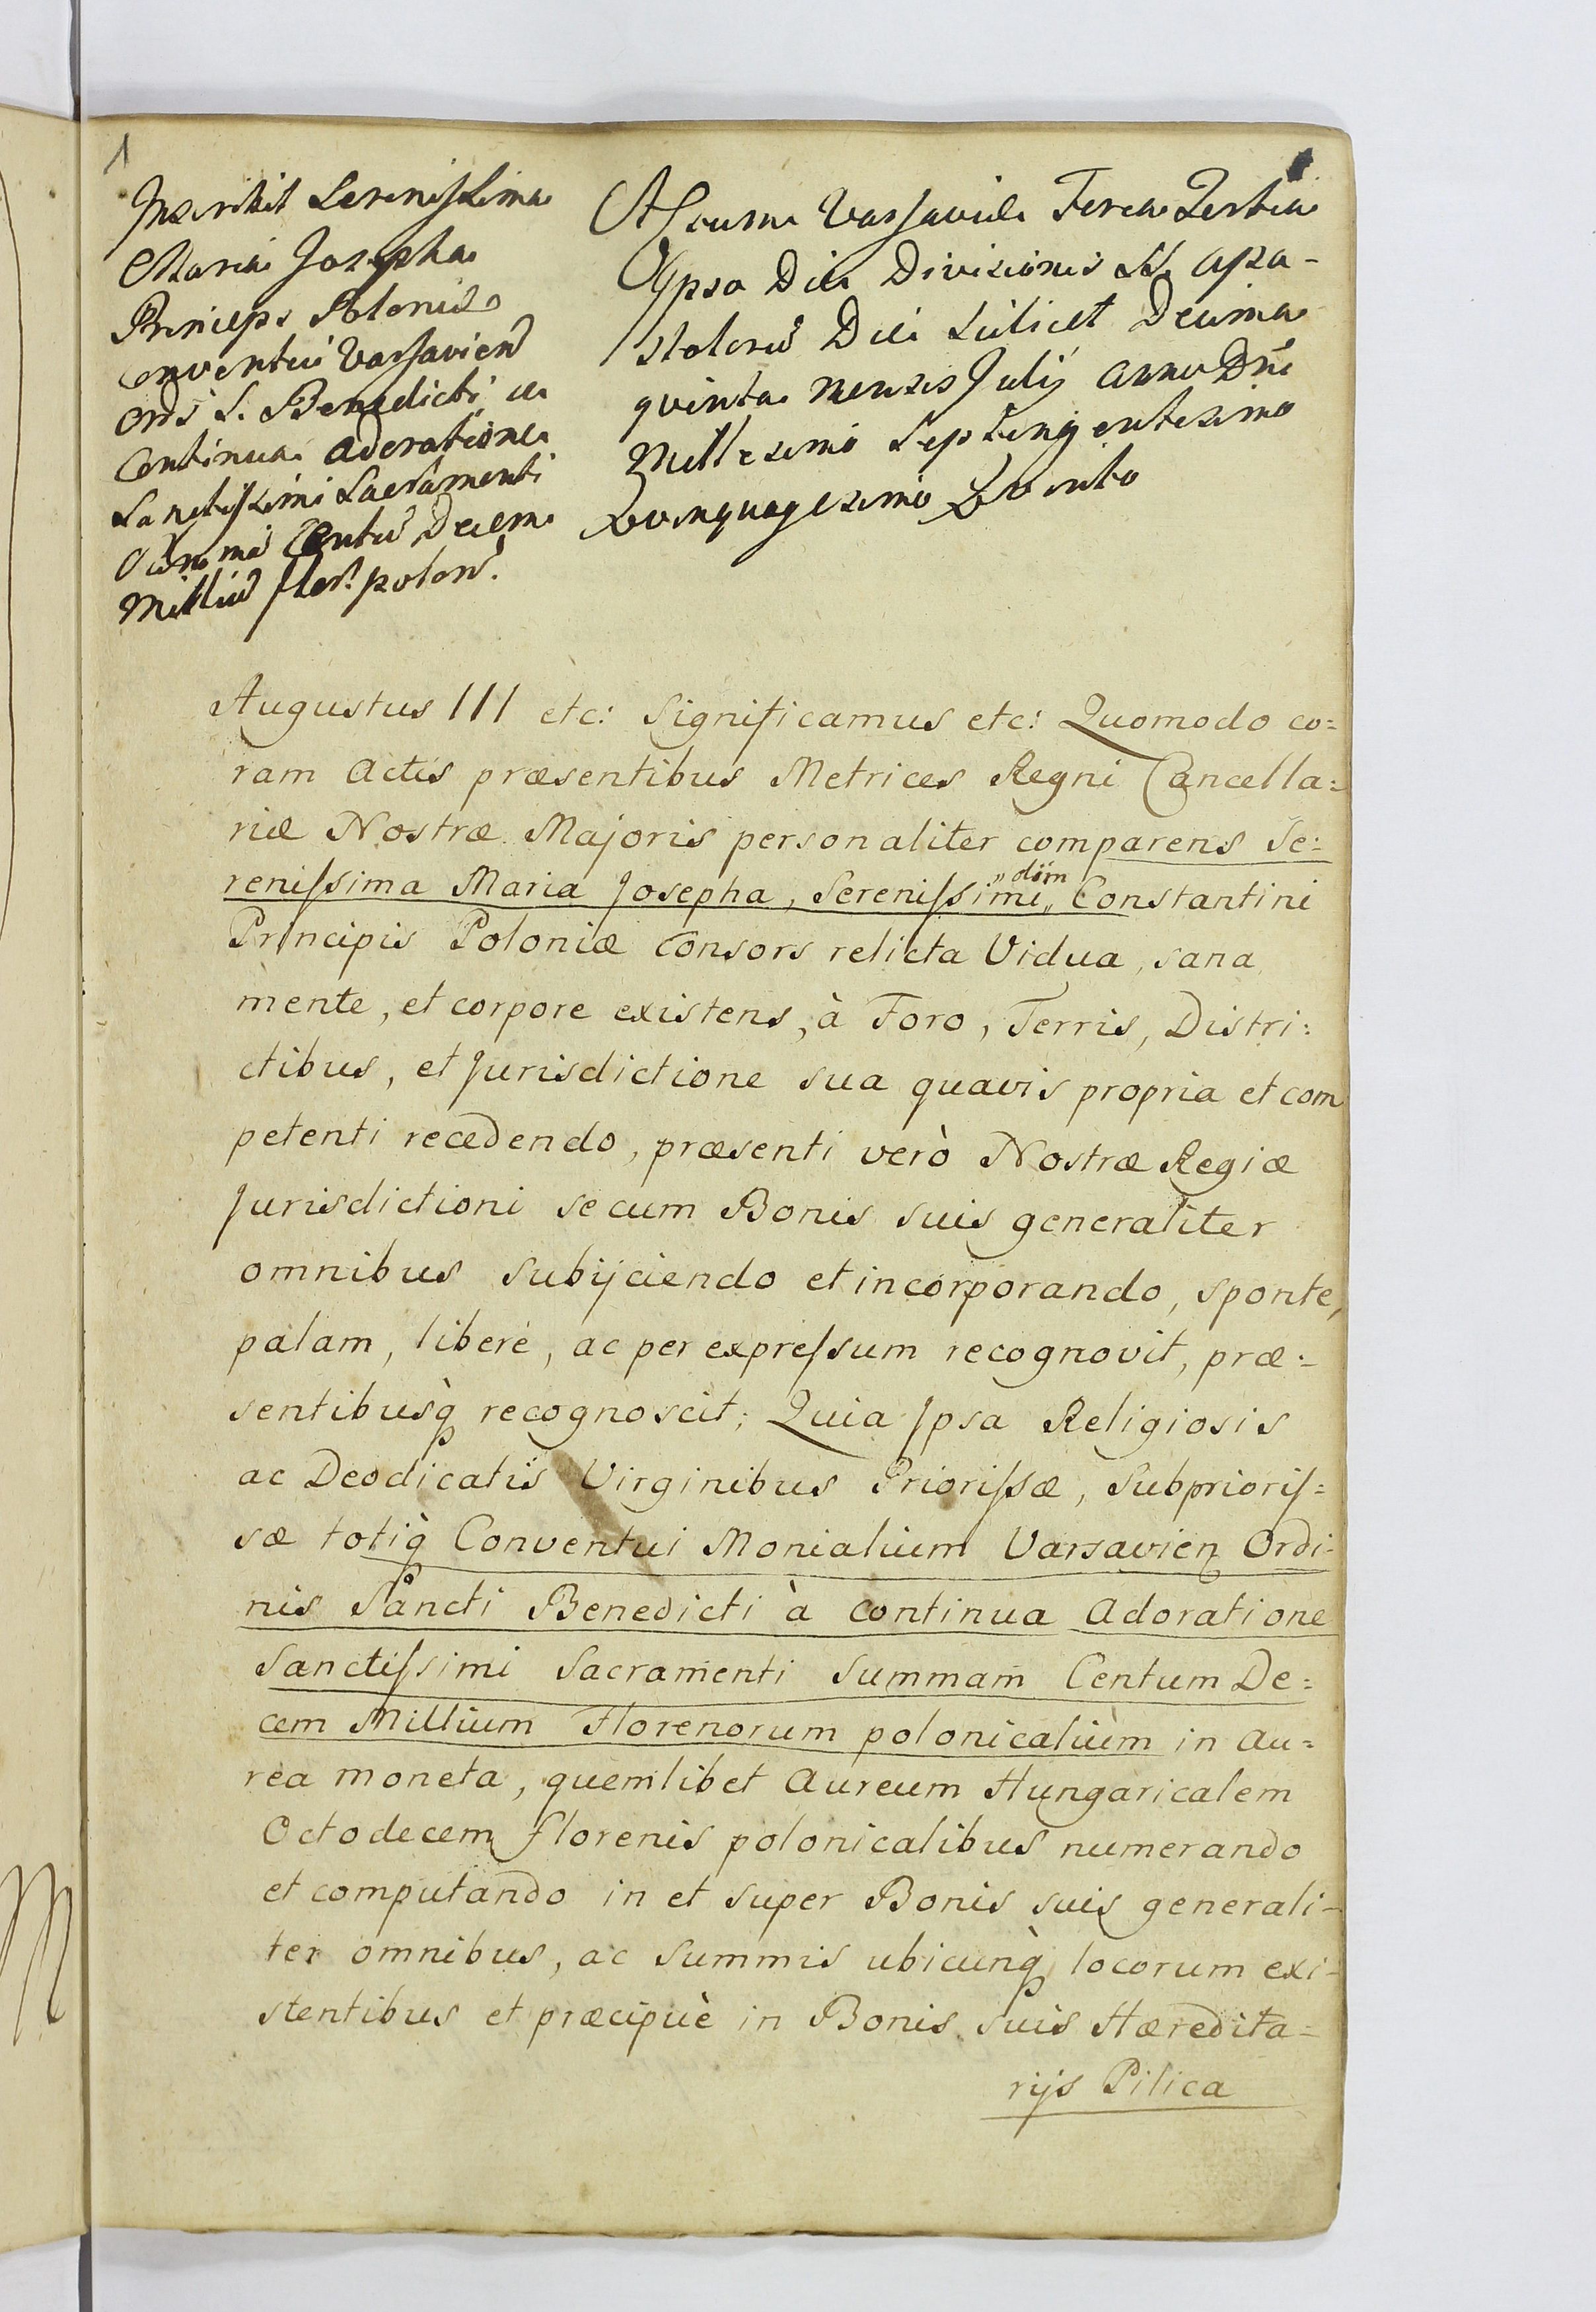 1
Inscribit Serenissima
Maria Josepha
Princeps Poloniæ
Conventui Varsavien̄
Ord̄s S. Benedicti a
Continua Adoratione
Sanctissimi Sacramenti
Summā Centū Decem
Milliū flor. polon̄.
Actum Varsaviæ Feria Tertia
Ipso Die Divisionis SS. Apo-
stolorū Die Scilicet Decima
quinta Mensis Julij Anno Dn̄i
Millesimo Septingentesimo
Quinquagesimo Quinto
Augustus III etc: Significamus etc: Quomodo co=
ram Actis præsentibus Metrices Regni Cancella=
riæ Nostræ Majoris personaliter comparens Se=
renissima Maria Josepha, Serenissimi „ olim „ Constantini
Principis Poloniæ Consors relicta Vidua, sana
mente, et corpore existens, à Foro, Terris, Distri=
ctibus, et Jurisdictione sua quavis propria et com
petenti recedendo, præsenti verò Nostræ Regiæ
Jurisdictioni se cum Bonis suis generaliter
omnibus subijciendo et incorporando, sponte,
palam, liberè, ac per expressum recognovit, præ=
sentibusq̀ recognoscit; Quia Ipsa Religiosis
ac Deodicatis Virginibus Priorissæ, Subprioris=
sæ totiq̀ Conventui Monialium Varsavien Ordi=
nis Sancti Benedicti à Continua Adoratione
Sanctissimi Sacramenti Summam Centum De=
cem Millium Florenorum polonicalium in au=
rea moneta, quemlibet Aureum Hungaricalem
Octodecem florenis polonicalibus numerando
et computando in et super Bonis suis generali=
ter omnibus, ac Summis ubicunq̀ locorum exi=
stentibus et præcipuè in Bonis suis Hæredita=
rijs Pilica